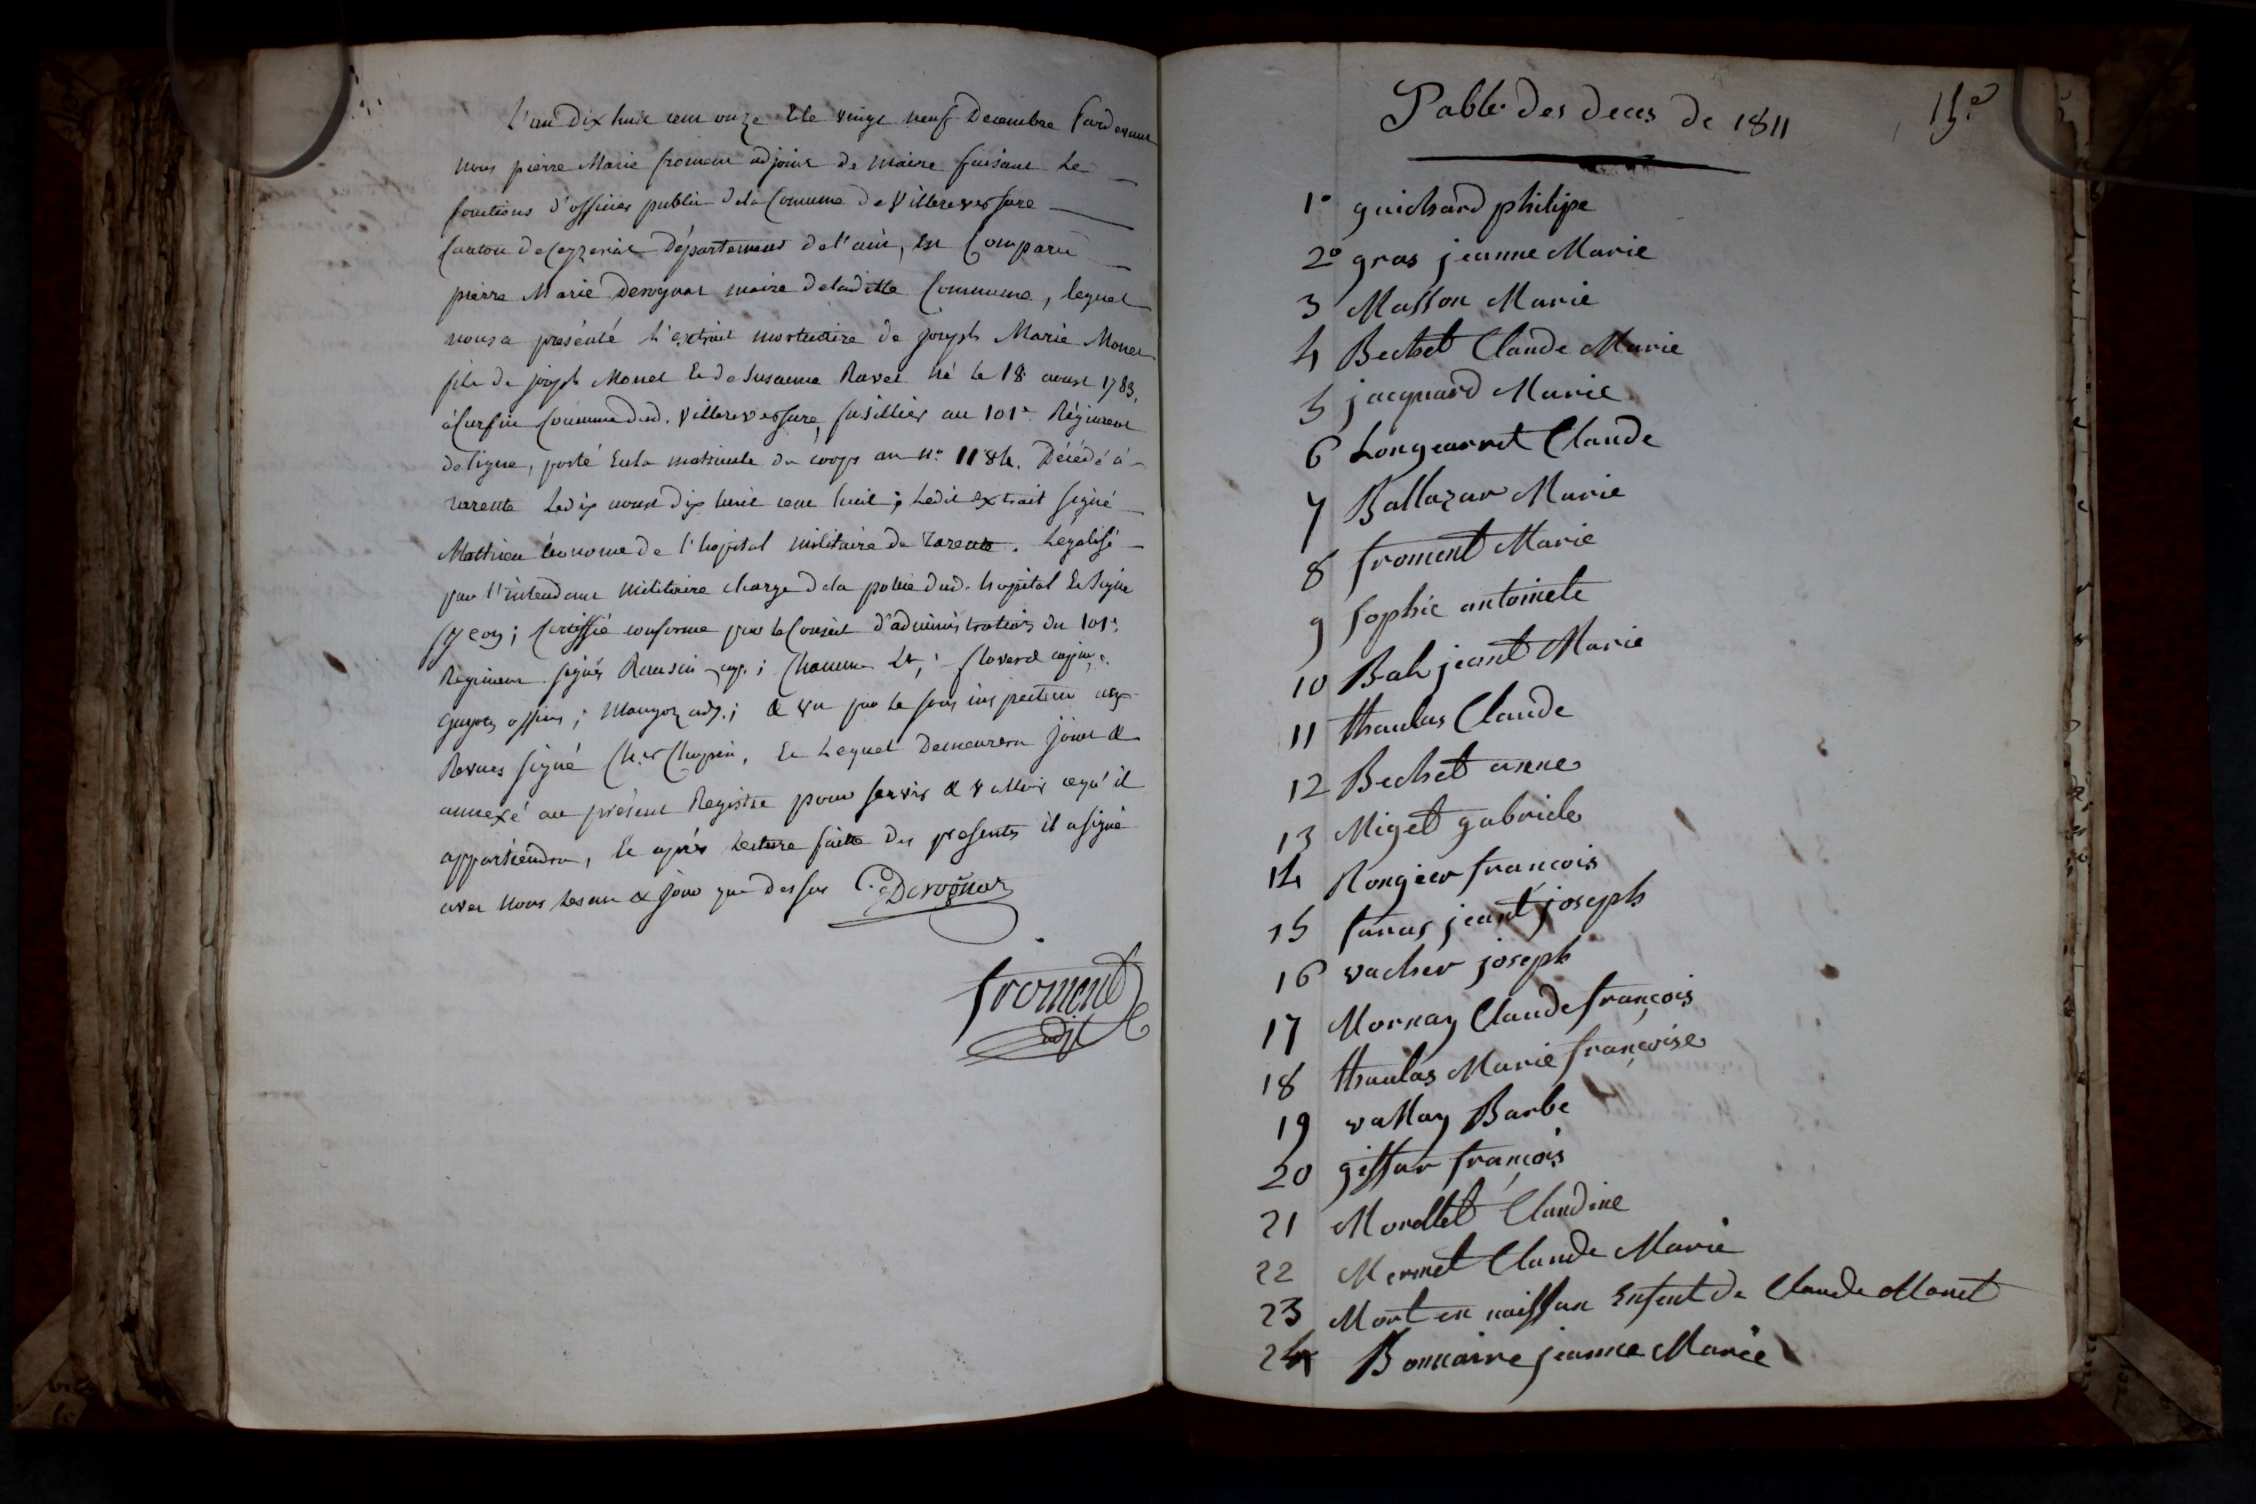 L'an dix huit cent onze & le vingt neuf Decembre Pardevant
nous pierre Marie froment adjoint de maire faisant les
fonctions d'officier public de la Comune de Villereversure
Canton de Ceyzeriat Département de l'ain, est Comparu
pierre Marie Derognat maire de laditte Commune, lequel
nous a présenté l'extrait mortuaire de joseph Marie Monet
fils de joseph Monet & de Susanne Ravet né le 18 aoust 1783,
à Curfin Commune dud. Villereversure, fusillier au 101e Régiment
de ligne, porté sur la matricule du corps au n° 1184. Décédé à
tarente le dix aoust dix huit cent huit; ledit extrait signé
Mathieu économe de l'hopital militaire de Tarente. Légalisé
par l'intendant militaire chargé de la police dud. hopital & Signé
; Certiffié conforme par le Conseil d'administration du 101e
Régiment signés cap.; Lt,;
officier; adj.; & vu par le sous inspecteur aux
Revues signé Cher Chopin, & Lequel Demeurera joint &
annexé au présent Registre pour servir & valloir ce qu'il
appartiendra, & après lecture faitte des presentes il a signé
avec nous les an & jour que dessus C. Derognat
froment
adjt
Table des deces de 1811
15e
1° guichard philipe
2° gras jeanne Marie
3 Masson Marie
4 Bechet Claude Marie
5 jacquard Marie
6 Longearret Claude
7 Baltazar Marie
8 froment Marie
9 sophie antoinete
10 Bah jeant Marie
11 thaulas Claude
12 Bechet anne
13 Miget gabriele
14 Rongier francois
15 faras jeant joseph
16 vacher joseph
17 Mornay Claude françois
18 thaulas Marie françoise
19 vallay Barbe
20 giffar françois
21 Morellet Claudine
22 Mermet Claude Marie
23 Mort en naissan Enfent de Claude Monet
24 Bonnaire jeanne Marie